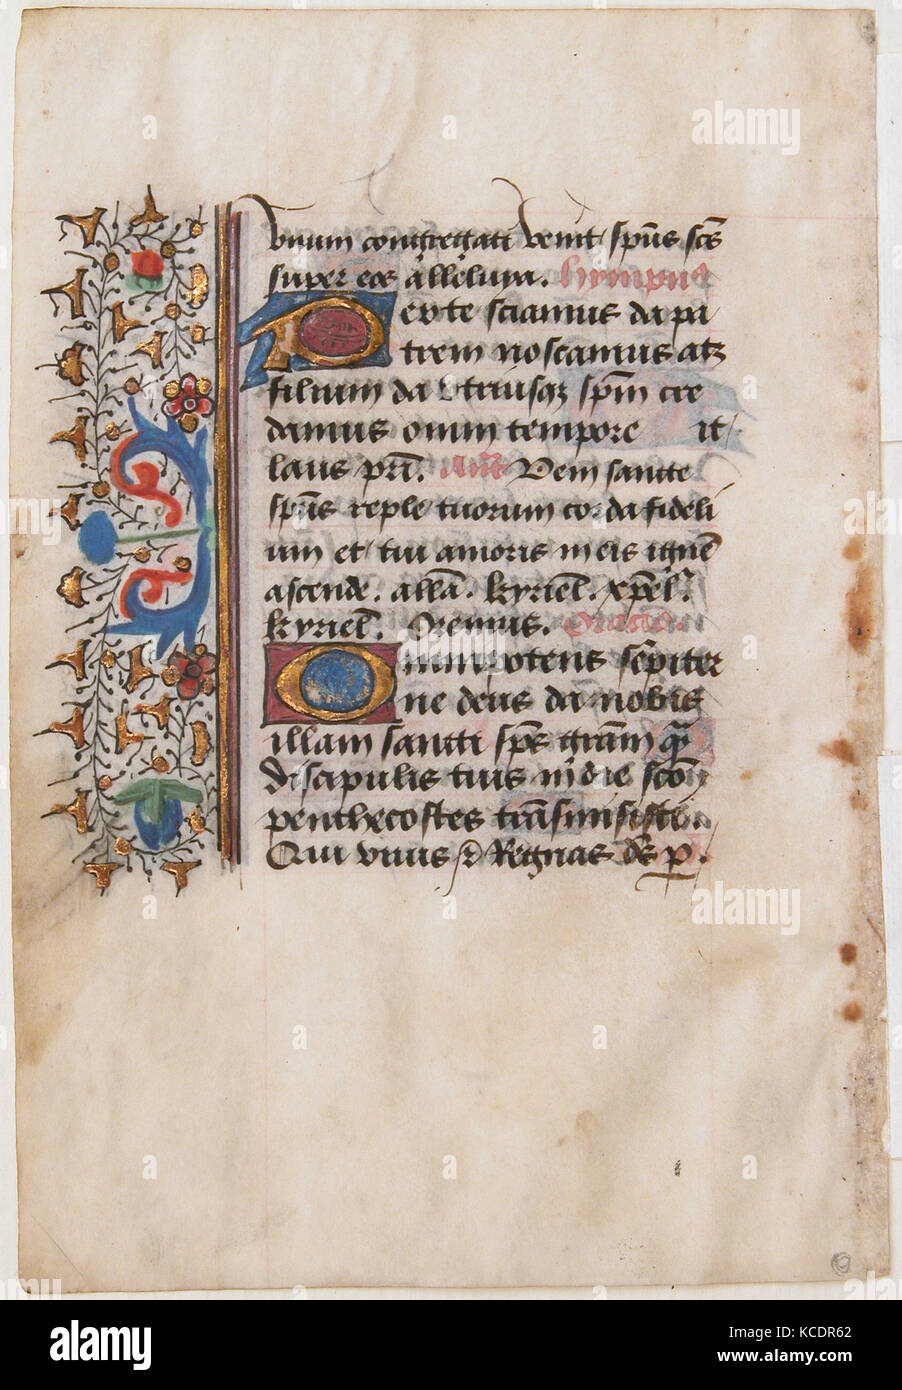 vnum congregati venit spūs scs
super eos alleluya. Hympnus
Per te sciamus da pa
trem noscamus atz
filium da vtriusqz spm cre
damus omni tempore it
laus pri. Ant Veni sancte
spūs reple tuorum corda fideli
um et tui amoris in eis ignē
ascende. allā. kyriel. xpēl.
kyriel. Oremus. Oratio.
Omnipotens sēpiter
ne deus da nobis
illam sancti sps grām quā
discipulis tuis in die scōn
penthecostes trāsmisisti
Qui viuis et Regnas ds p.
alamy
alamy
alamy
Image ID: KCDR62
www.alamy.com